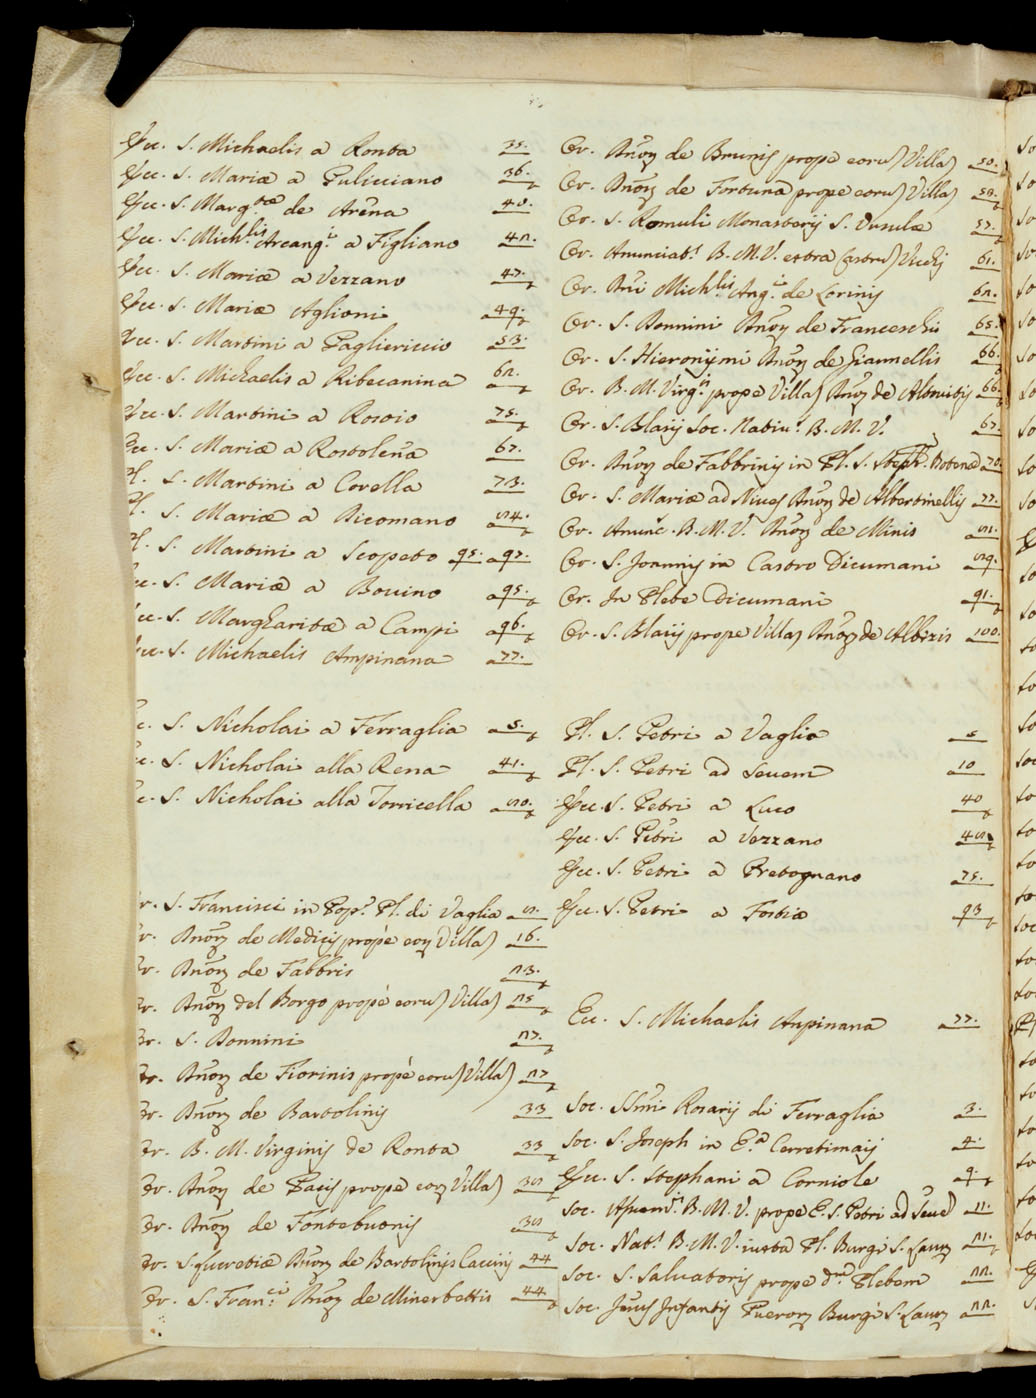 Ecc. S. Michaelis a Ronta 35.
Ecc. S. Mariæ a Pulicciano 36.
Ecc. S. Marg.tæ de Arena 40.
Ecc. S. Mich.lis Arcang.i a Figliano 42.
Ecc. S. Mariæ a Vezzano 47.
Ecc. S. Mariæ Aglioni 49.
Ecc. S. Martini a Pagliericcio 53.
Ecc. S. Michaelis a Ribecanina 62.
Ecc. S. Martini a Rosoio 75.
Ecc. S. Mariæ a Rostolena 67.
Pl. S. Martini a Corella 73.
Pl. S. Mariæ a Dicomano 84.
Pl. S. Martini a Scopeto 95. 97.
Ecc. S. Mariæ a Bovino 95.
Ecc. S. Margharitæ a Campi 96.
Ecc. S. Michaelis Ampinana 77.
Ec. S. Nicholai a Ferraglia 5.
Ec. S. Nicholai alla Rena 41.
Ec. S. Nicholai alla Torricella 80.
Or. S. Francisci in Pop.o Pl. di Vaglia 8.
Or. Dnõrz de Medicij propè eorz Villaz 16.
Or. Dnõrz de Fabbris 23.
Or. Dnõrz del Borgo propè eoruz Villaz 25
Or. S. Bonnini 27.
Or. Dnõrz de Fiorinis propè eoruz Villaz 27
Or. Dnõrz de Bartolinij 33
Or. B. M. Virginij de Ronta 33
Or. Dnõrz de Pacij propè eorz Villaz 38
Or. Dnõrz de Fontebuonij 38
Or. S. Dnõrz de Bartolinijs 44
Or. S. Fran.ci Dnõrz de Minerbettis 44
Or. Dnõrz de Brunij propè eoruz Villaz 50.
Or. Dnõrz de Fortuna prope eoruz Villaz
Or. S. Romuli Monasterij S. Ursulæ 57.
Or. Anunciat.s B. M. V. extra Castruz 61.
Or. Dñi Mich.lis Ang.i de Lorinij 62.
Or. S. Bonnini Dnõrz de Franceschis 65.
Or. S. Hieronijmi Dnõrz de Giannellis 66.
Or. B. M. Virg.is prope Villaz Dnõrz de 66.
Or. S. Blasij Soc. Nativ.s B. M. V. 67.
Or. Dnõrz de Fabbrinij in Pl. S. Steph. Botena 70.
Or. S. Mariæ ad Nives Dnõrz de Albertinellij 77.
Or. Anunc. B. M. V. Dnõrz de Minis 81.
Or. S. Joannij in Castro Dicumani 89.
Or. In Plebe Dicumani 91.
Or. S. Blasij prope Villaz Dnõrz de Albizis 100.
Pl. S. Petri a Vaglia 8
Pl. S. Petri ad Sevem 10
Ecc. S. Petri a Luco 40
Ecc. S. Petri a Vezzano 48
Ecc. S. Petri a Pretognano 75.
Ecc. S. Petri a Fostia 93
Ecc. S. Michaelis Anpinana 77.
Soc. SSmi Rosarij di Ferraglia 3.
Soc. S. Joseph in E.a Cerretimaij 4.
Ecc. S. Stephani a Corniole 9.
Soc. B. M. V. prope E. S. Petri ad 11.
Soc. Nat.s B. M. V. iuxta Pl. Burgi S. Laurz 21.
Soc. S. Salvatorij prope d.am Plebem 22.
Soc. Jesus Infantij Puerorz Burgi S. Laurz 22.